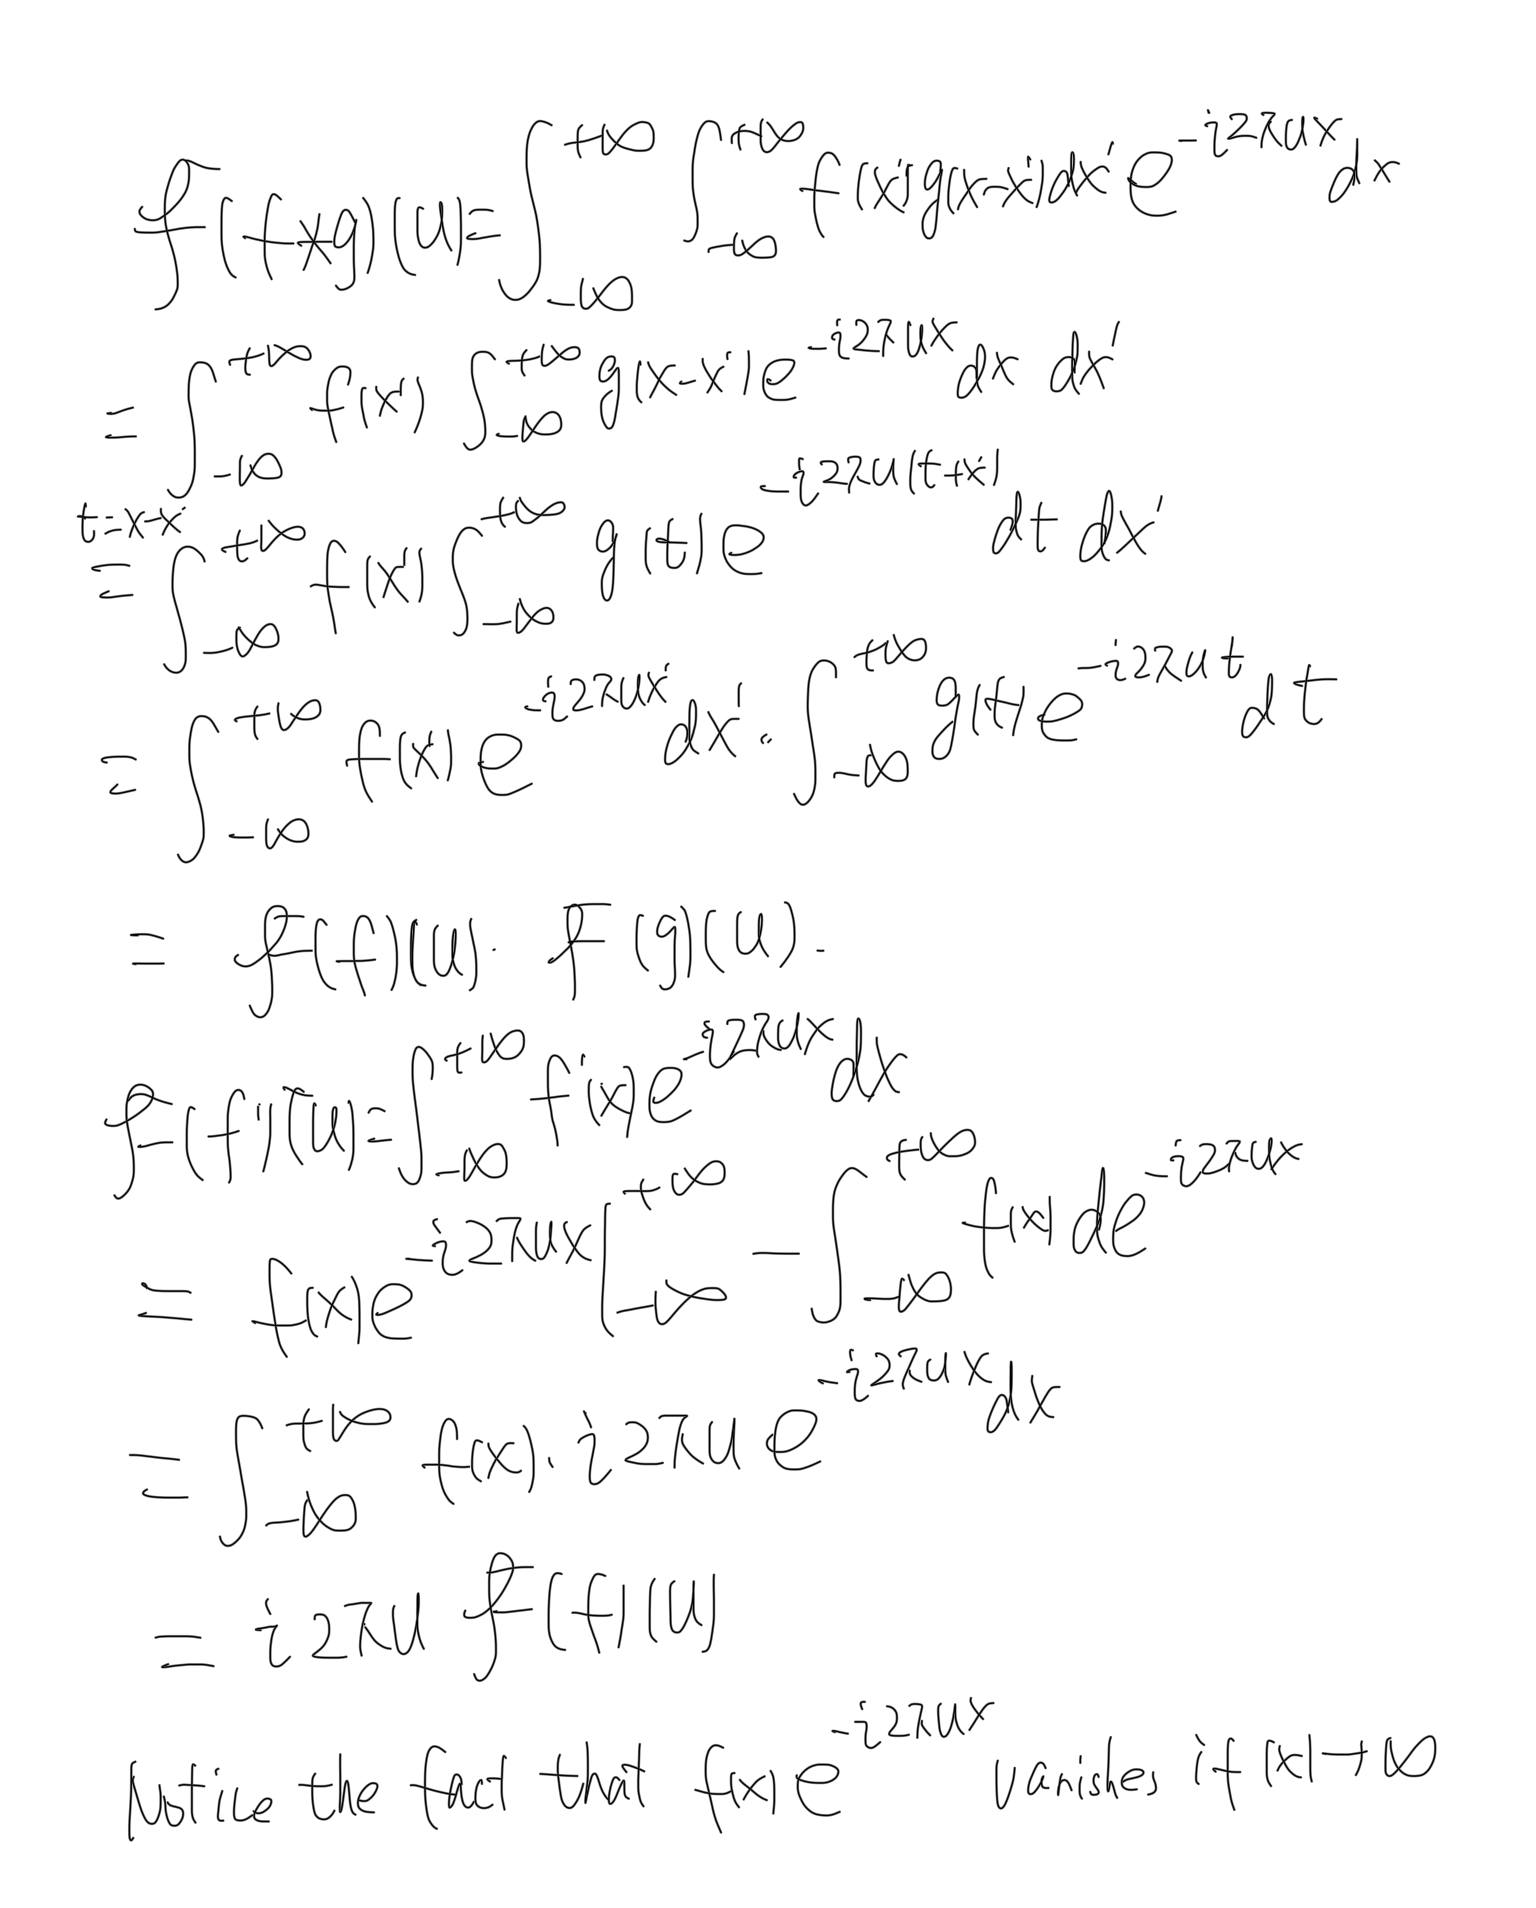 ℱ(f*g)(u)=∫_{-∞}^{+∞} ∫_{-∞}^{+∞} f(x')g(x-x')dx' e^{-i2πux} dx
= ∫_{-∞}^{+∞} f(x') ∫_{-∞}^{+∞} g(x-x')e^{-i2πux} dx dx'
t=x-x'
= ∫_{-∞}^{+∞} f(x') ∫_{-∞}^{+∞} g(t)e^{-i2πu(t+x')} dt dx'
= ∫_{-∞}^{+∞} f(x') e^{-i2πux'} dx' · ∫_{-∞}^{+∞} g(t)e^{-i2πut} dt
= ℱ(f)(u) · F(g)(u).
ℱ(f')(u)=∫_{-∞}^{+∞} f'(x)e^{-i2πux} dx
= f(x)e^{-i2πux}|_{-∞}^{+∞} - ∫_{-∞}^{+∞} f(x) de^{-i2πux}
= ∫_{-∞}^{+∞} f(x) · i2πu e^{-i2πux} dx
= i2πu ℱ(f)(u)
Notice the fact that f(x)e^{-i2πux} vanishes if |x|→∞